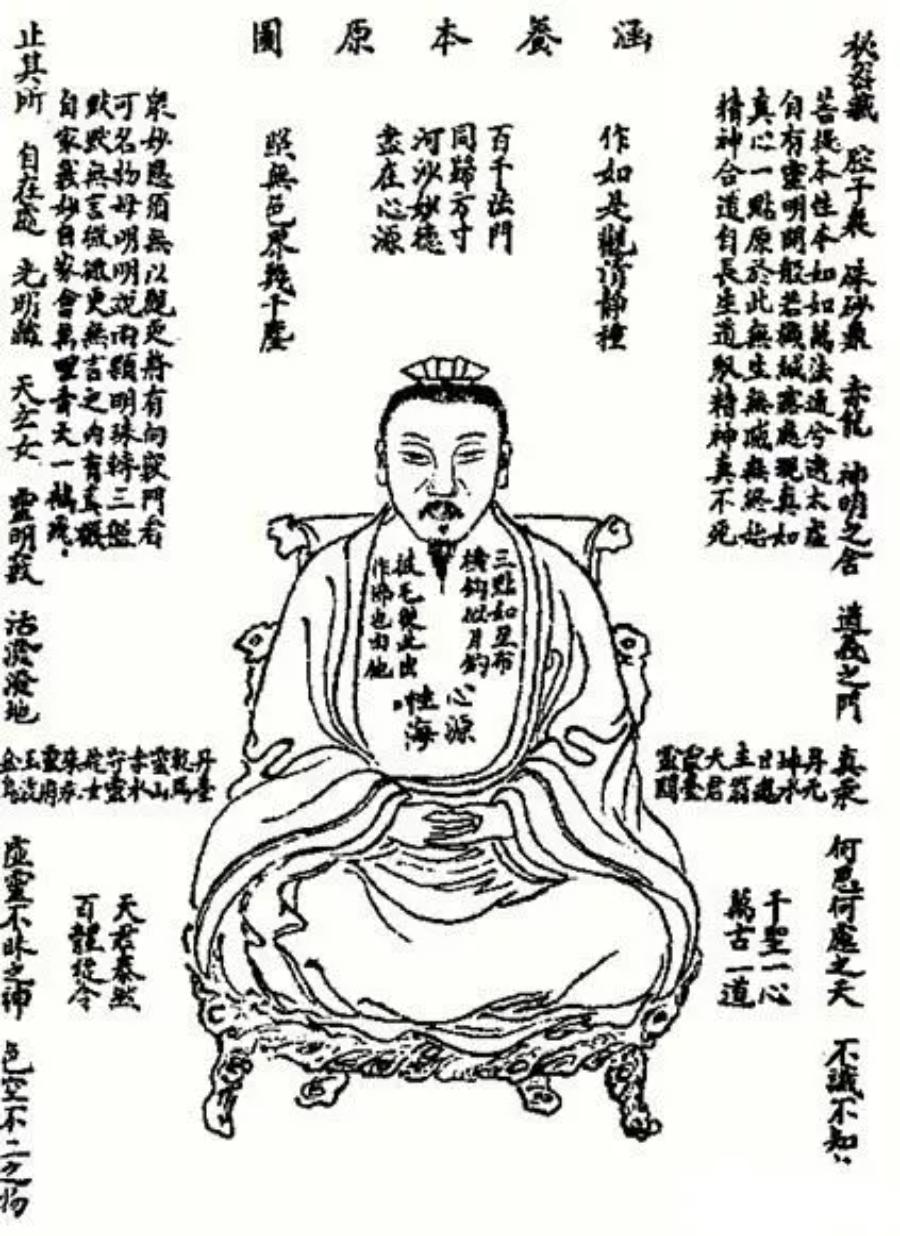 涵養本原圖
秘密藏 腔子裏 硃砂鼎 赤龍 神明之舍 道義之門 真汞 何思何慮之天 不識不知
菩提本性本如如萬法遍兮遍太虛
自有靈明開般若機緘露處現真如
真心一點原於此無生無滅無終始
精神合道自長生道馭精神真不死
作如是觀清靜種
百千法門
同歸方寸
河沙妙德
盡在心源
照無色界幾千塵
須無以觀更將有向竅門看
可名物母明明說兩顆明珠轉三盤
默默無言微更無言之內有真機
自家 妙自家會萬里青天一鶴飛
止其所 自在處 光明藏 天玄女 靈明竅 活潑潑地 虛靈不昧之神 色空不二之物
三點如星布
橫鈎似月
披毛從此出
作佛也由他
心源
性海
丹元
主翁
天君
靈臺
靈關
丹臺
乾馬
靈山
赤水
守靈
姹女
朱汞
靈府
玉液
金烏
千聖一心
萬古一道
天君泰然
百體從令